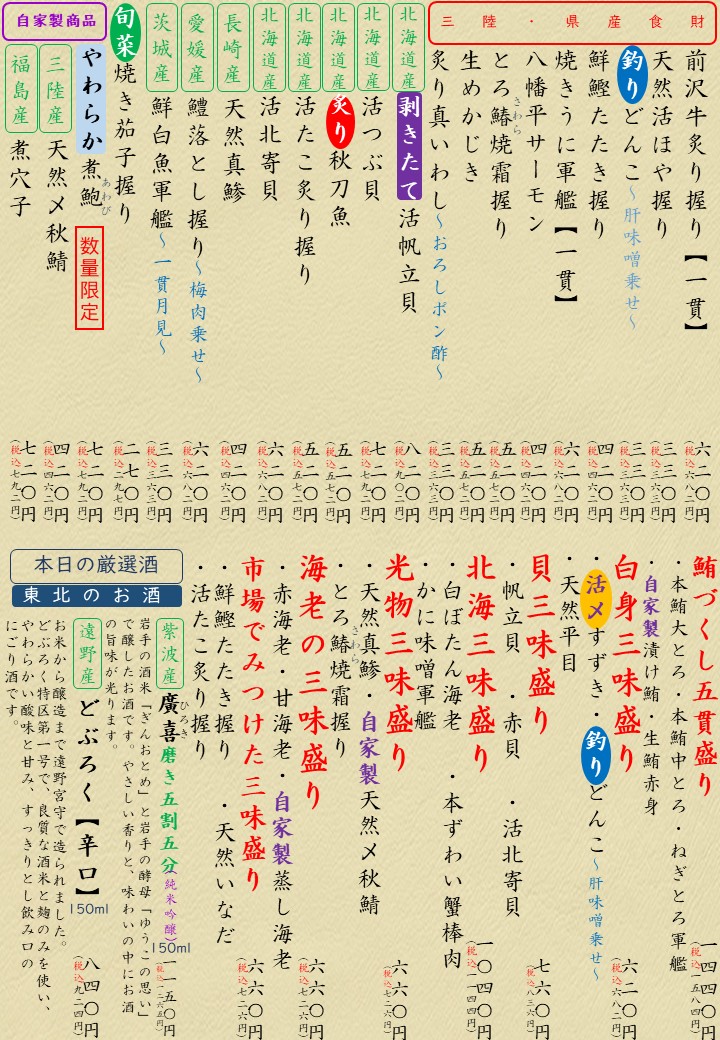 三陸・県産食財
前沢牛炙り握り【一貫】 六二〇円（税込六八二円）
天然活ほや握り 三三〇円（税込三六三円）
釣りどんこ～肝味噌乗せ～ 三三〇円（税込三六三円）
鮮鰹たたき握り 四二〇円（税込四六二円）
焼きうに軍艦【一貫】 六二〇円（税込六八二円）
八幡平サーモン 四二〇円（税込四六二円）
とろ鰆焼霜握り 五二〇円（税込五七二円）
さわら
生めかじき 五二〇円（税込五七二円）
炙り真いわし～おろしポン酢～ 三三〇円（税込三六三円）
北海道産 剥きたて活帆立貝 八二〇円（税込九〇二円）
北海道産 活つぶ貝 七二〇円（税込七九二円）
北海道産 炙り秋刀魚 五二〇円（税込五七二円）
北海道産 活たこ炙り握り 五二〇円（税込五七二円）
北海道産 活北寄貝 六二〇円（税込六八二円）
長崎産 天然真鯵 四二〇円（税込四六二円）
愛媛産 鱧落とし握り～梅肉乗せ～ 六二〇円（税込六八二円）
茨城産 鮮白魚軍艦～一貫月見～ 三三〇円（税込三六三円）
旬菜 焼き茄子握り 二七〇円（税込二九七円）
自家製商品
やわらか煮鮑 数量限定 七二〇円（税込七九二円）
あわび
三陸産 天然〆秋鯖 四二〇円（税込四六二円）
福島産 煮穴子 七二〇円（税込七九二円）
鮪づくし五貫盛り 一四四〇円（税込一五八四円）
・本鮪大とろ・本鮪中とろ・ねぎとろ軍艦
・自家製漬け鮪・生鮪赤身
白身三味盛り 六二〇円（税込六八二円）
・活〆すずき・釣りどんこ～肝味噌乗せ～
・天然平目
貝三味盛り 七六〇円（税込八三六円）
・帆立貝・赤貝・活北寄貝
北海三味盛り 一〇四〇円（税込一一四四円）
・白ぼたん海老・本ずわい蟹棒肉
・かに味噌軍艦
光物三味盛り 六六〇円（税込七二六円）
・天然真鯵・自家製天然〆秋鯖
・とろ鰆焼霜握り
さわら
海老の三味盛り 六六〇円（税込七二六円）
・赤海老・甘海老・自家製蒸し海老
市場でみつけた三味盛り 六六〇円（税込七二六円）
・鮮鰹たたき握り・天然いなだ
・活たこ炙り握り
本日の厳選酒
東北のお酒
紫波産 廣喜磨き五割五分（純米吟醸）150ml 一一五〇円（税込一二六五円）
ひろき
岩手の酒米「ぎんおとめ」と岩手の酵母「ゆうこの思い」
で醸したお酒です。やさしい香りと、味わいの中にお酒
の旨味が光ります。
遠野産 どぶろく【辛口】150ml 八四〇円（税込九二四円）
お米から醸造まで遠野宮守で造られました。
どぶろく特区第一号で、良質な酒米と麹のみを使い、
やわらかい酸味と甘み、すっきりとし飲み口の
にごり酒です。